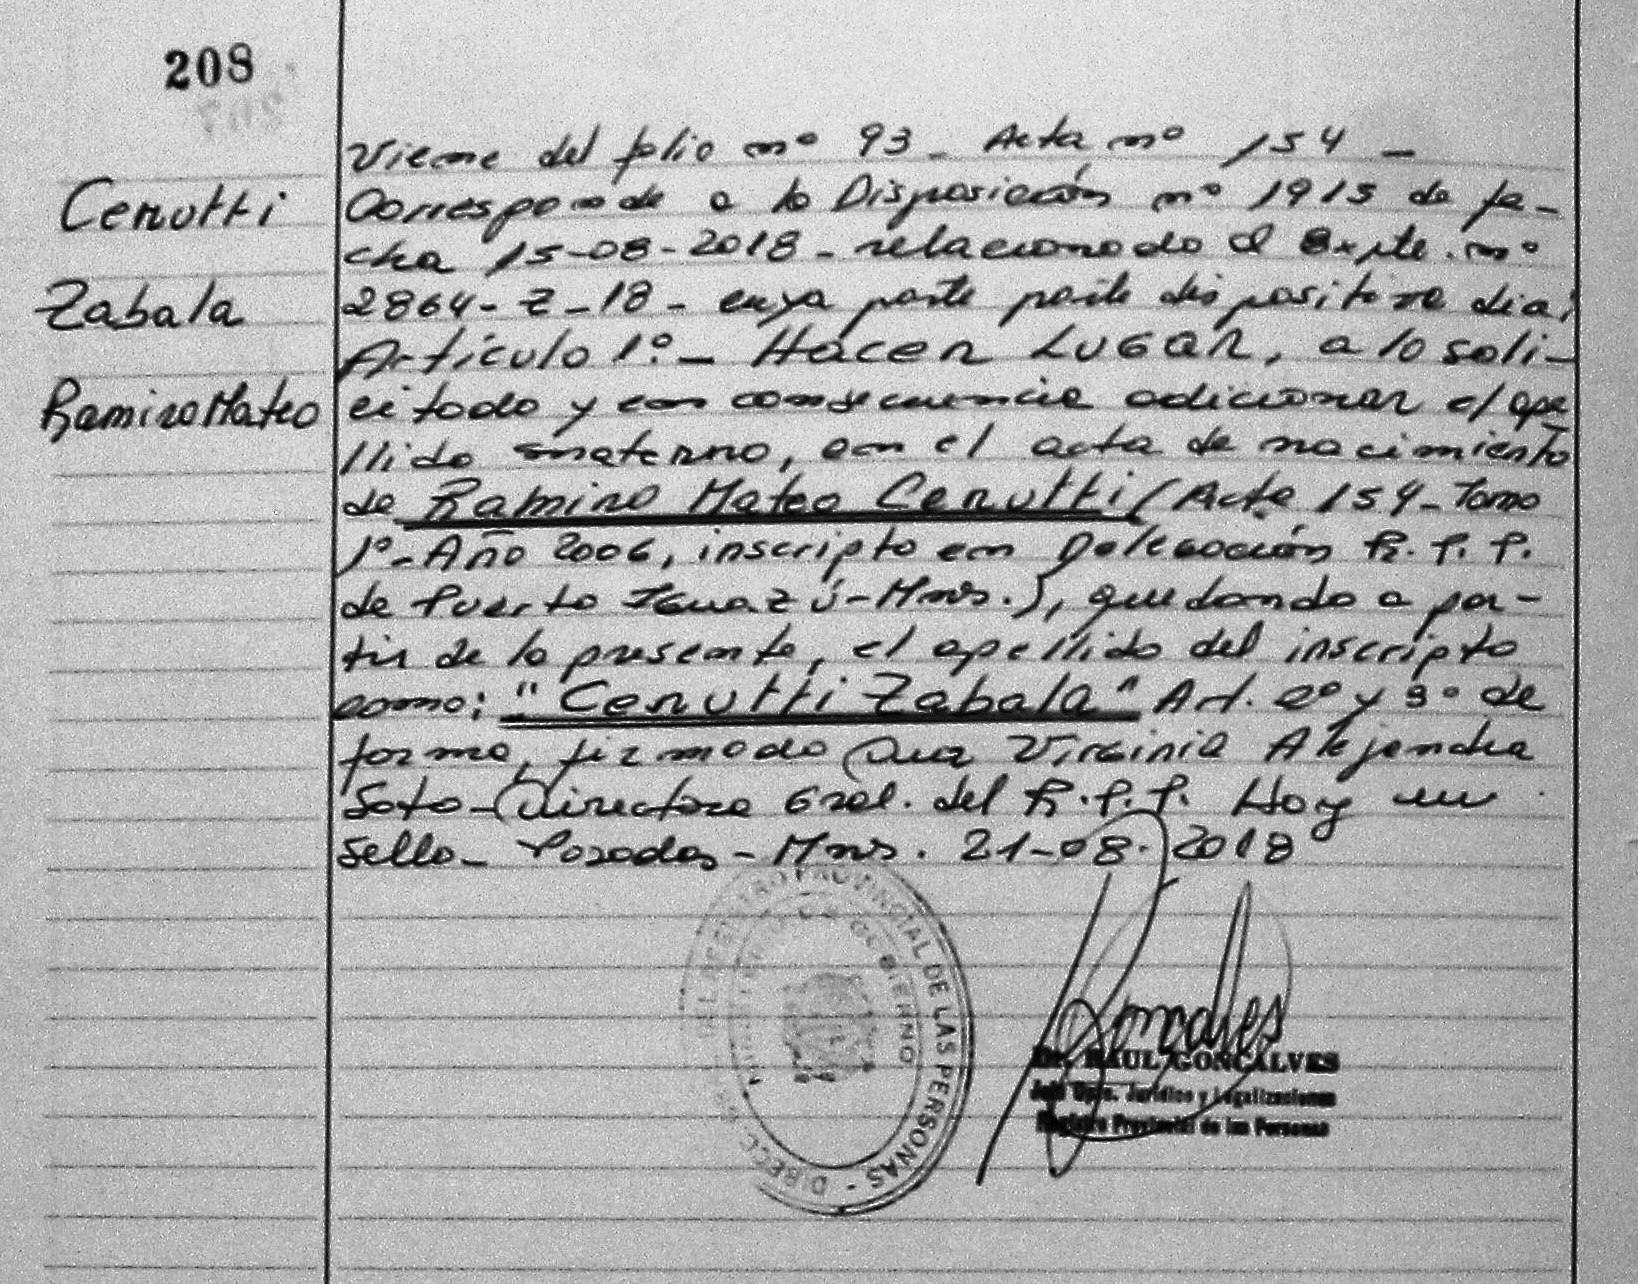 208
Cerutti
Zabala
Ramiro Mateo
Viene del folio nº 93 - Acta nº 154 -
Corresponde a la Disposición nº 1915 de fe-
cha 15-08-2018 - relacionado al Expte. nº
2864-Z-18 - cuya parte parte dispositiva dia:
Artículo 1º - HACER LUGAR, a lo soli-
citado y en consecuencia adicionar el ape
llido materno, en el acta de nacimiento
de Ramiro Mateo Cerutti (Acta 154 - Tomo
1º - Año 2006, inscripto en Delegación R.P.P.
de Puerto Iguazú - Mns.), quedando a par-
tir de la presente, el apellido del inscripto
como: "Cerutti Zabala" Art. 2º y 3º de
forma, firmado Dra Virginia Alejandra
Soto - Directora Gral. del R.P.P. Hay un
sello - Posadas - Mns. 21-08-2018
DIRECC. GRAL. DEL REGISTRO PROVINCIAL DE LAS PERSONAS -
MINISTERIO DE GOBIERNO
Dr. RAUL GONCALVES
Jefe Dpto. Jurídico y Legalizaciones
Registro Provincial de las Personas